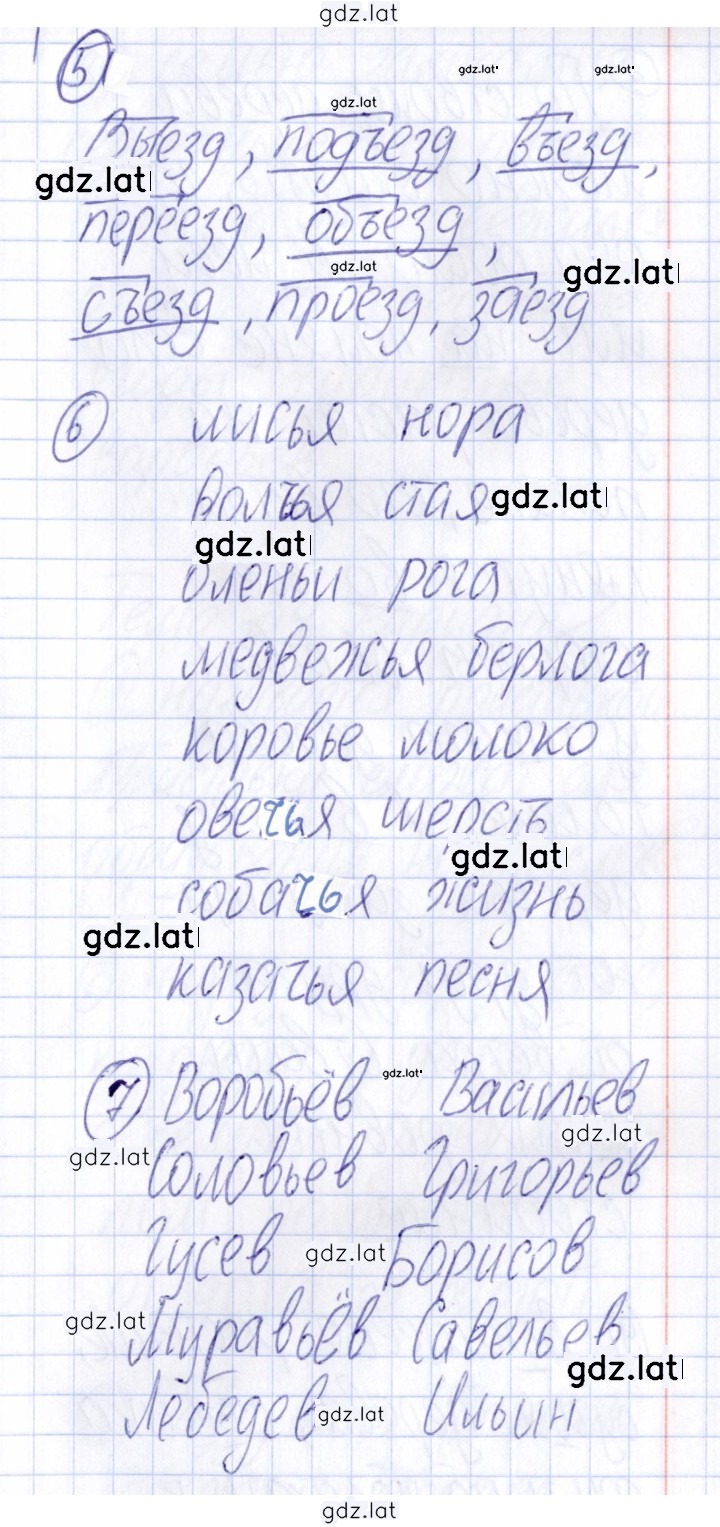 gdz.lat
5
gdz.lat gdz.lat
gdz.lat
Выезд, подъезд, въезд,
gdz.lat
переезд, объезд,
gdz.lat
gdz.lat
съезд, проезд, заезд
6 лисья нора
волчья стая gdz.lat
gdz.lat
оленьи рога
медвежья берлога
коровье молоко
овечья шерсть
gdz.lat
собачья жизнь
gdz.lat
казачья песня
gdz.lat
7 Воробьёв Васильев
gdz.lat
gdz.lat
Соловьев Григорьев
Гусев gdz.lat Борисов
gdz.lat
Муравьёв Савельев
gdz.lat
Лебедев gdz.lat Ильин
gdz.lat